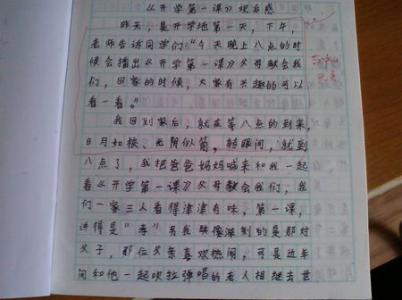 《开学第一课》观后感
昨天，是开学地第一天，下午，
老师告诉同学们："今天晚上八点的时
候会播出《开学第一课》父母教会我
们，回家的时候，大家有兴趣的可以
看一看。"
我回到家后，就在等八点的到来，
日月如梭、光阴似箭，转眼间，就到
八点了，我把爸爸妈妈喊来和我一起
看《开学第一课》父母教会我们，我
们一家三人看得津津有味，第一课，
讲得是"孝"另我映像深刻的是那对
父子，那位父亲喜欢热闹，可是近年
间和他一起吹拉弹唱的老人相继去世